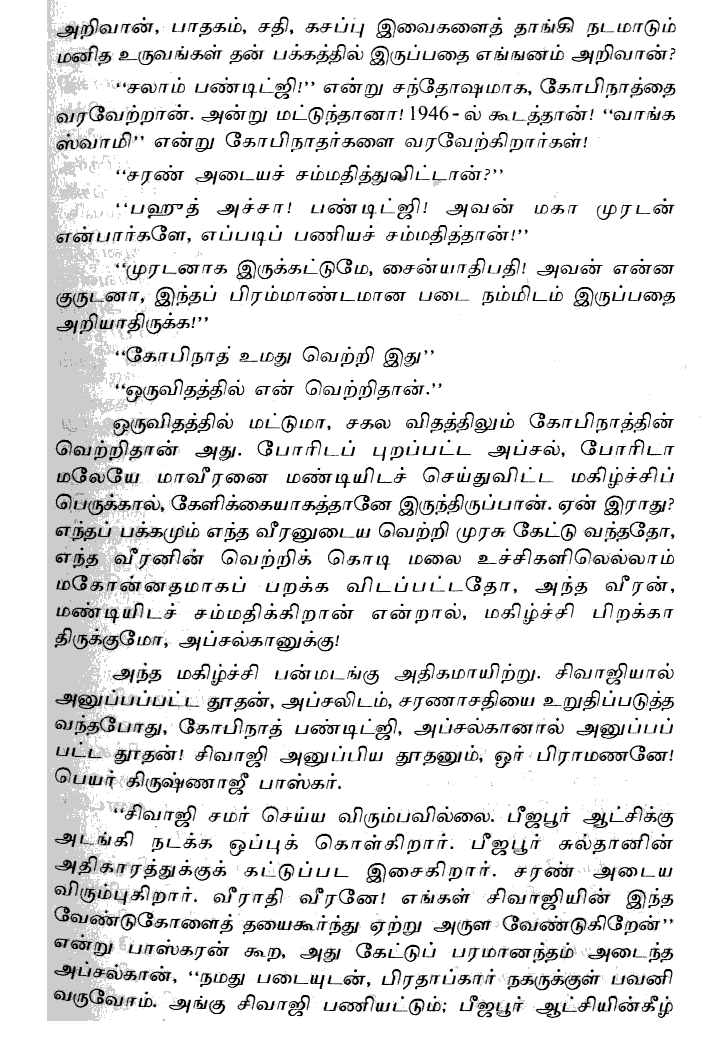 அறிவான், பாதகம், சதி, கசப்பு இவைகளைத் தாங்கி நடமாடும்
மனித உருவங்கள் தன் பக்கத்தில் இருப்பதை எங்ஙனம் அறிவான்?
“சலாம் பண்டிட்ஜி!” என்று சந்தோஷமாக, கோபிநாத்தை
வரவேற்றான். அன்று மட்டுந்தானா! 1946-ல் கூடத்தான்! “வாங்க
ஸ்வாமி” என்று கோபிநாதர்களை வரவேற்கிறார்கள்!
“சரண் அடையச் சம்மதித்துவிட்டான்?”
“பஹுத் அச்சா! பண்டிட்ஜி! அவன் மகா முரடன்
என்பார்களே, எப்படிப் பணியச் சம்மதித்தான்!”
“முரடனாக இருக்கட்டுமே, சைன்யாதிபதி! அவன் என்ன
குருடனா, இந்தப் பிரம்மாண்டமான படை நம்மிடம் இருப்பதை
அறியாதிருக்க!”
“கோபிநாத் உமது வெற்றி இது”
“ஒருவிதத்தில் என் வெற்றிதான்.”
ஒருவிதத்தில் மட்டுமா, சகல விதத்திலும் கோபிநாத்தின்
வெற்றிதான் அது. போரிடப் புறப்பட்ட அப்சல், போரிடா
மலேயே மாவீரனை மண்டியிடச் செய்துவிட்ட மகிழ்ச்சிப்
பெருக்கால், கேளிக்கையாகத்தானே இருந்திருப்பான். ஏன் இராது?
எந்தப் பக்கமும் எந்த வீரனுடைய வெற்றி முரசு கேட்டு வந்ததோ,
எந்த வீரனின் வெற்றிக் கொடி மலை உச்சிகளிலெல்லாம்
மகோன்னதமாகப் பறக்க விடப்பட்டதோ, அந்த வீரன்,
மண்டியிடச் சம்மதிக்கிறான் என்றால், மகிழ்ச்சி பிறக்கா
திருக்குமோ, அப்சல்கானுக்கு!
அந்த மகிழ்ச்சி பன்மடங்கு அதிகமாயிற்று. சிவாஜியால்
அனுப்பப்பட்ட தூதன், அப்சலிடம், சரணாசதியை உறுதிப்படுத்த
வந்தபோது, கோபிநாத் பண்டிட்ஜி, அப்சல்கானால் அனுப்பப்
பட்ட தூதன்! சிவாஜி அனுப்பிய தூதனும், ஓர் பிராமணனே!
பெயர் கிருஷ்ணாஜீ பாஸ்கர்.
“சிவாஜி சமர் செய்ய விரும்பவில்லை. பீஜபூர் ஆட்சிக்கு
அடங்கி நடக்க ஒப்புக் கொள்கிறார். பீஜபூர் சுல்தானின்
அதிகாரத்துக்குக் கட்டுப்பட இசைகிறார். சரண் அடைய
விரும்புகிறார். வீராதி வீரனே! எங்கள் சிவாஜியின் இந்த
வேண்டுகோளைத் தயைகூர்ந்து ஏற்று அருள வேண்டுகிறேன்”
என்று பாஸ்கரன் கூற, அது கேட்டுப் பரமானந்தம் அடைந்த
அப்சல்கான், “நமது படையுடன், பிரதாப்கார் நகருக்குள் பவனி
வருவோம். அங்கு சிவாஜி பணியட்டும்; பீஜபூர் ஆட்சியின்கீழ்